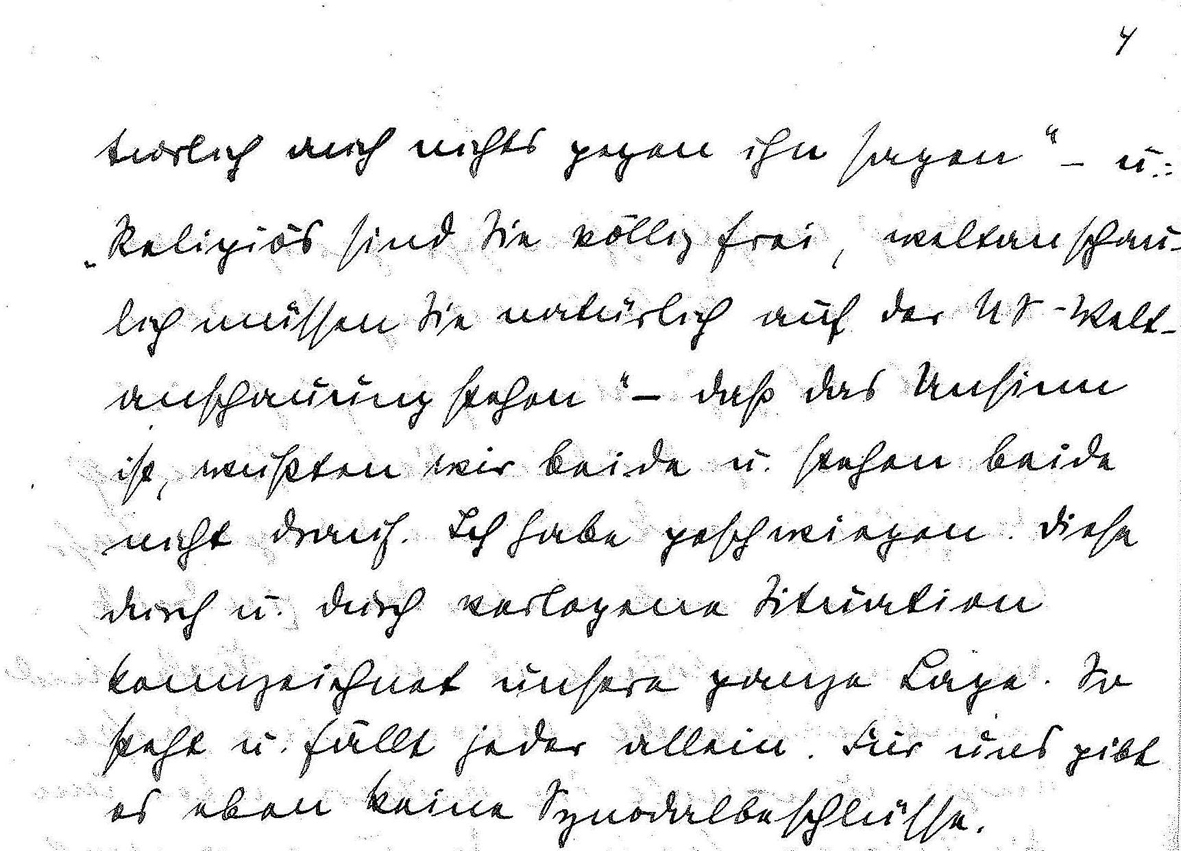 4
türlich auch nichts gegen ihn sagen" – u.:
„Religiös sind Sie völlig frei, weltanschau-
lich müssen Sie natürlich auf der NS-Welt-
anschauung stehen" – daß das Unsinn
ist, wußten wir beide u. stehen beide
nicht drauf. Ich habe geschwiegen. Diese
durch u. durch verlogene Situation
kennzeichnet unsere ganze Lage. So
steht u. fällt jeder allein. Für uns gibt
es eben keine Synodalbeschlüsse.